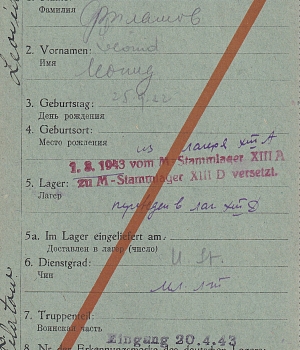 Фамилия
Филатов
2. Vornamen:
Leonid
Имя
Леонид
3. Geburtstag:
25.4.22
День рождения
4. Geburtsort:
Место рождения
из лагеря XIII A
1. 8. 1943 vom M-Stammlager XIII A
5. Lager:
zu M-Stammlager XIII D versetzt.
Лагерь
переведен в лаг XIII D
5a. Im Lager eingeliefert am
Доставлен в лагерь (число)
6. Dienstgrad:
Чин
мл. лт
7. Truppenteil:
Воинская часть
Eingang 20.4.43